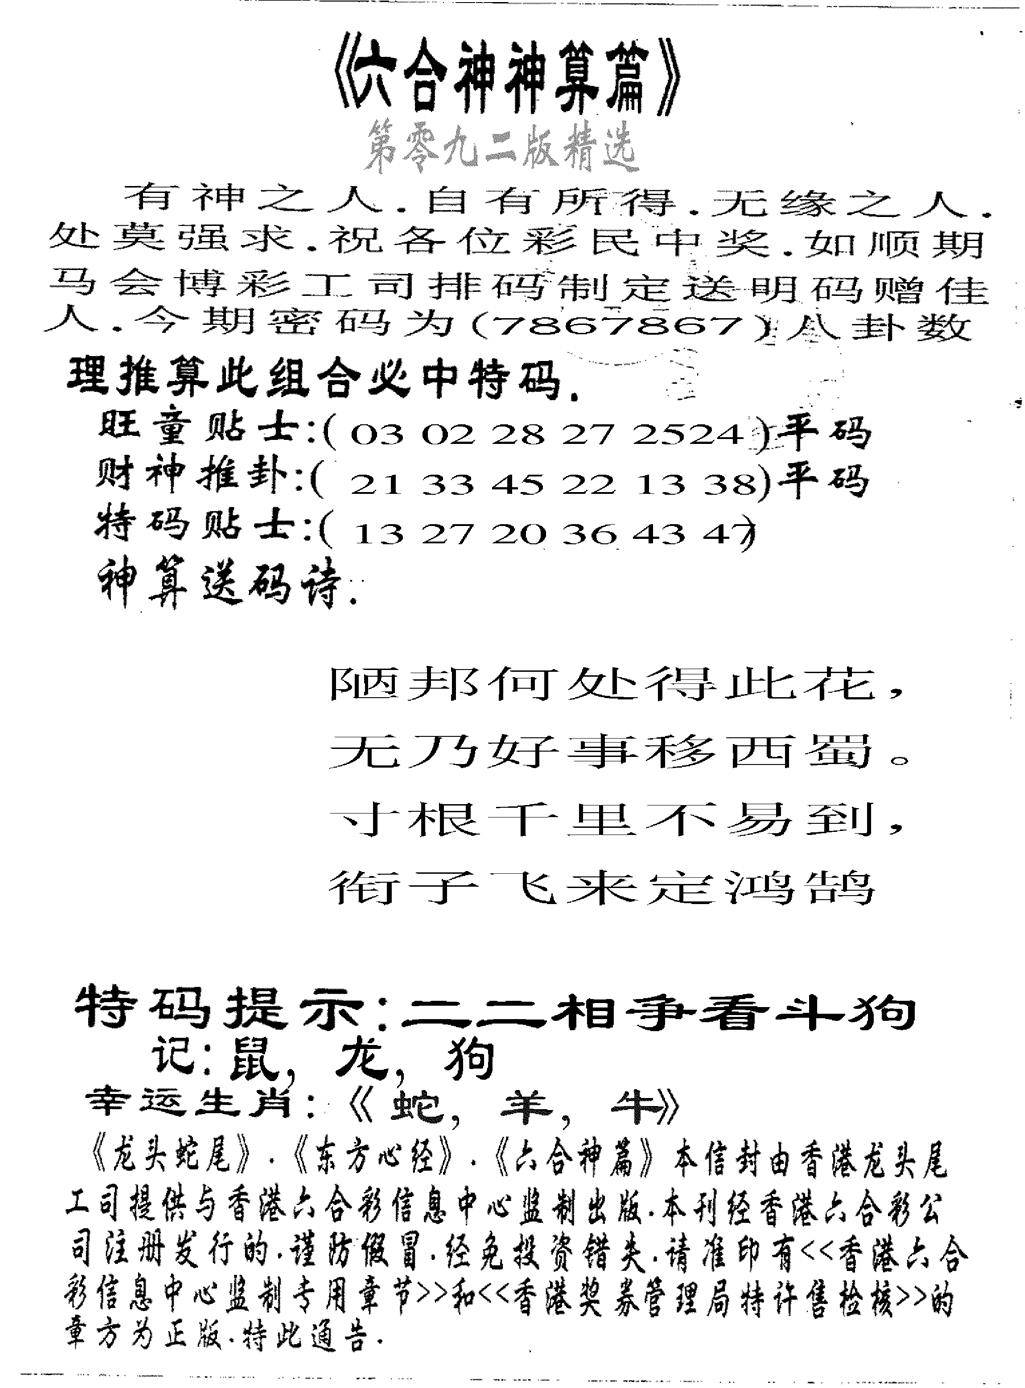 《六合神神算篇》
第零九二版精选
有神之人.自有所得.无缘之人.
处莫强求.祝各位彩民中奖.如顺期
马会博彩工司排码制定送明码赠佳
人.今期密码为(7867867)八卦数
理推算此组合必中特码.
旺童贴士:( 03 02 28 27 2524 )平码
财神推卦:( 21 33 45 22 13 38)平码
特码贴士:( 13 27 20 36 43 47)
神算送码诗.
陋邦何处得此花，
无乃好事移西蜀。
寸根千里不易到，
衔子飞来定鸿鹄
特码提示:二二相争看斗狗
记:鼠，龙，狗
幸运生肖:《蛇，羊，牛》
《龙头蛇尾》.《东方心经》.《六合神篇》本信封由香港龙头尾
工司提供与香港六合彩信息中心监制出版.本刊经香港六合彩公
司注册发行的.谨防假冒.经免投资错失.请准印有<<香港六合
彩信息中心监制专用章节>>和<<香港奖券管理局特许售检核>>的
章方为正版.特此通告.